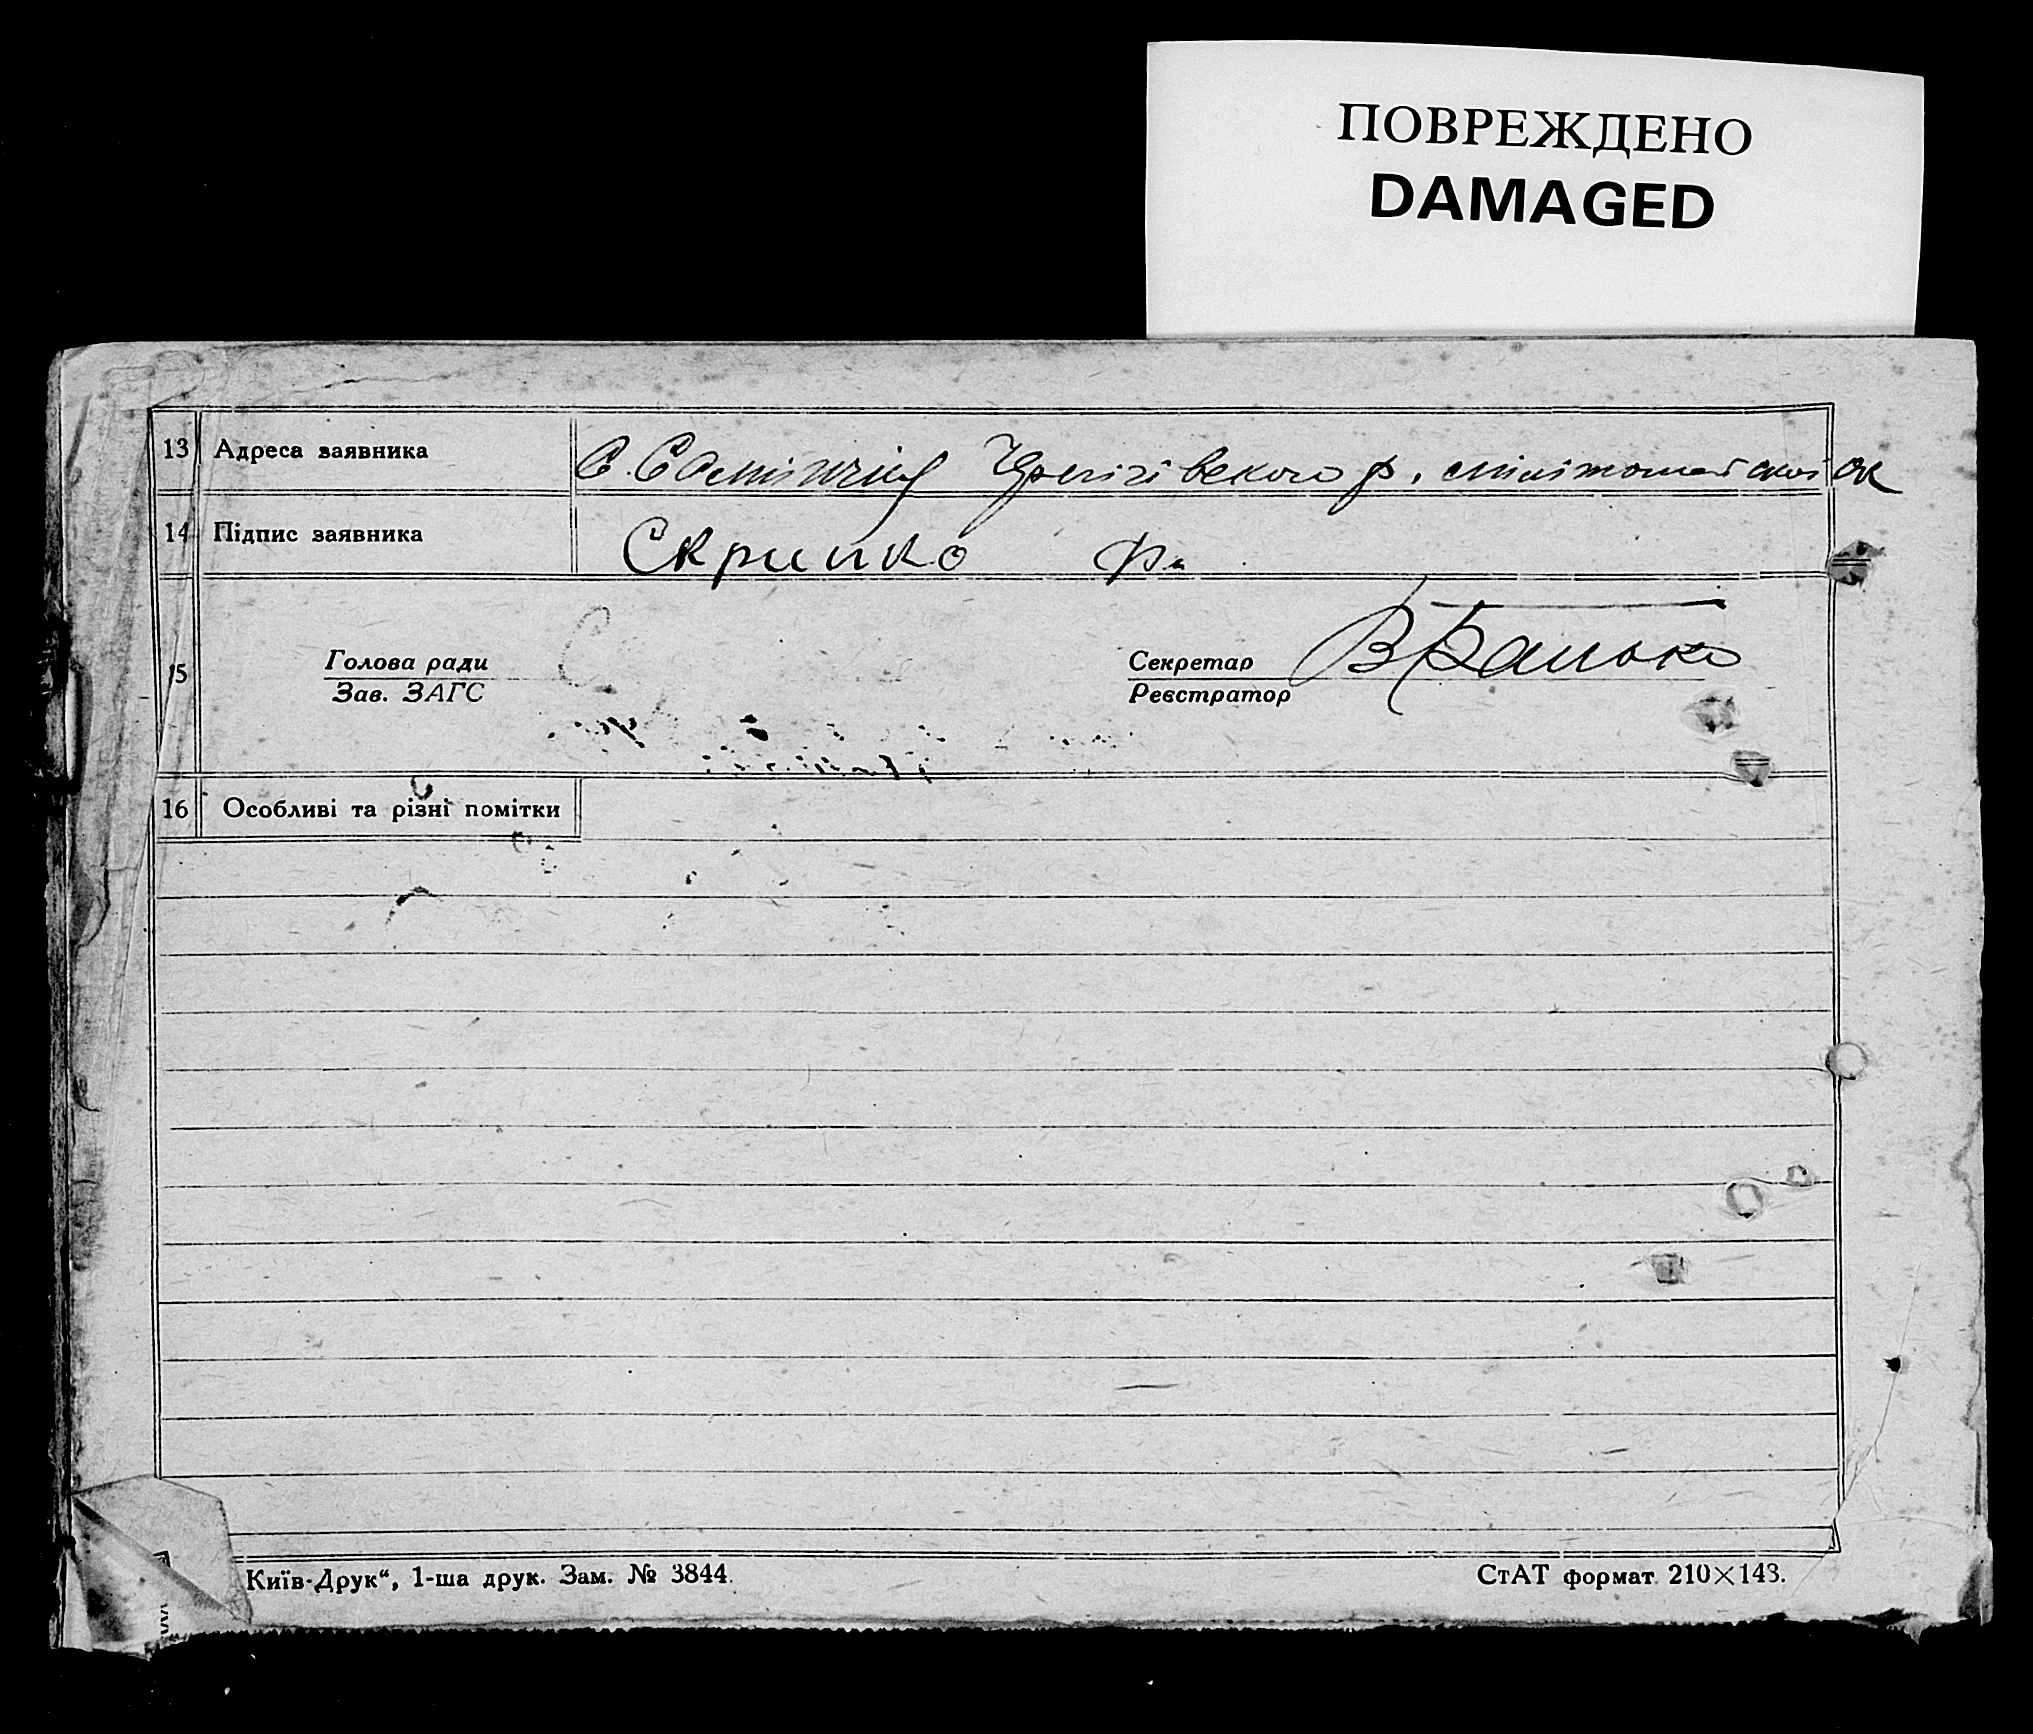 ПОВРЕЖДЕНО
DAMAGED
13 Адреса заявника С.
14 Підпис заявника Скрипко
15 Голова ради
Зав. ЗАГС
Секретар В Банько
Реєстратор
16 Особливі та різні помітки
Київ-Друк“, 1-ша друк. Зам. № 3844.
СтАТ формат 210×143.